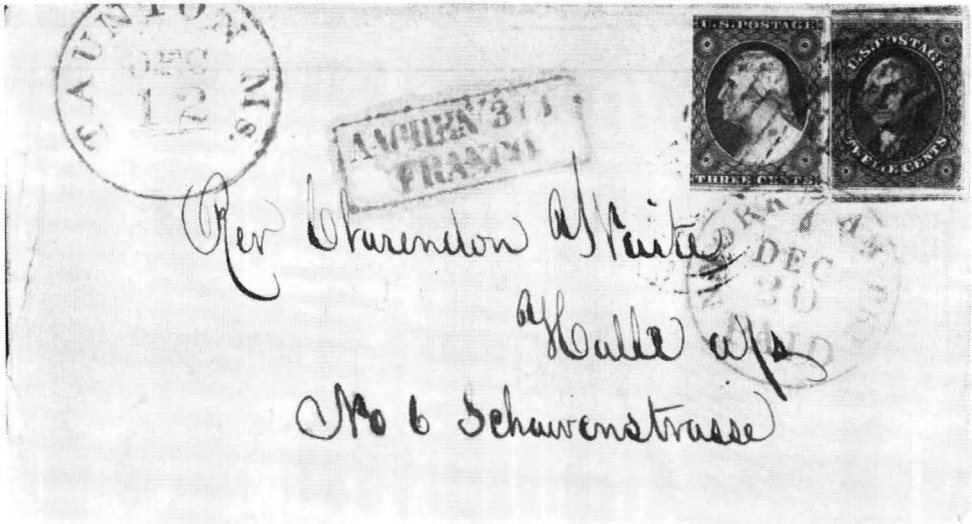 TAUNTON Ms.
DEC
12
AACHEN 3
FRANCO
U.S. POSTAGE
THREE CENTS
U.S. POSTAGE
TWELVE CENTS
Rev Clarendon Waite
Halle a/s
No 6 Schauvenstrasse
DEC
PAID